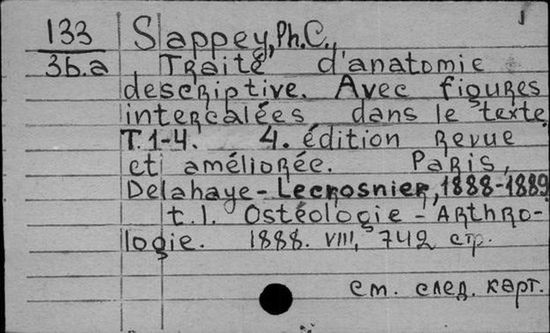 133 Sappey, Ph. C.,
3b.a Traité d'anatomie
descriptive. Avec figures
intercalées dans le texte
T. 1-4. 4. édition revue
et améliorée. Paris,
Delahaye - Lecrosnier, 1888-1889
t. 1. Ostéologie - Arthro-
logie. 1888. VIII, 742 стр.
см. след. карт.